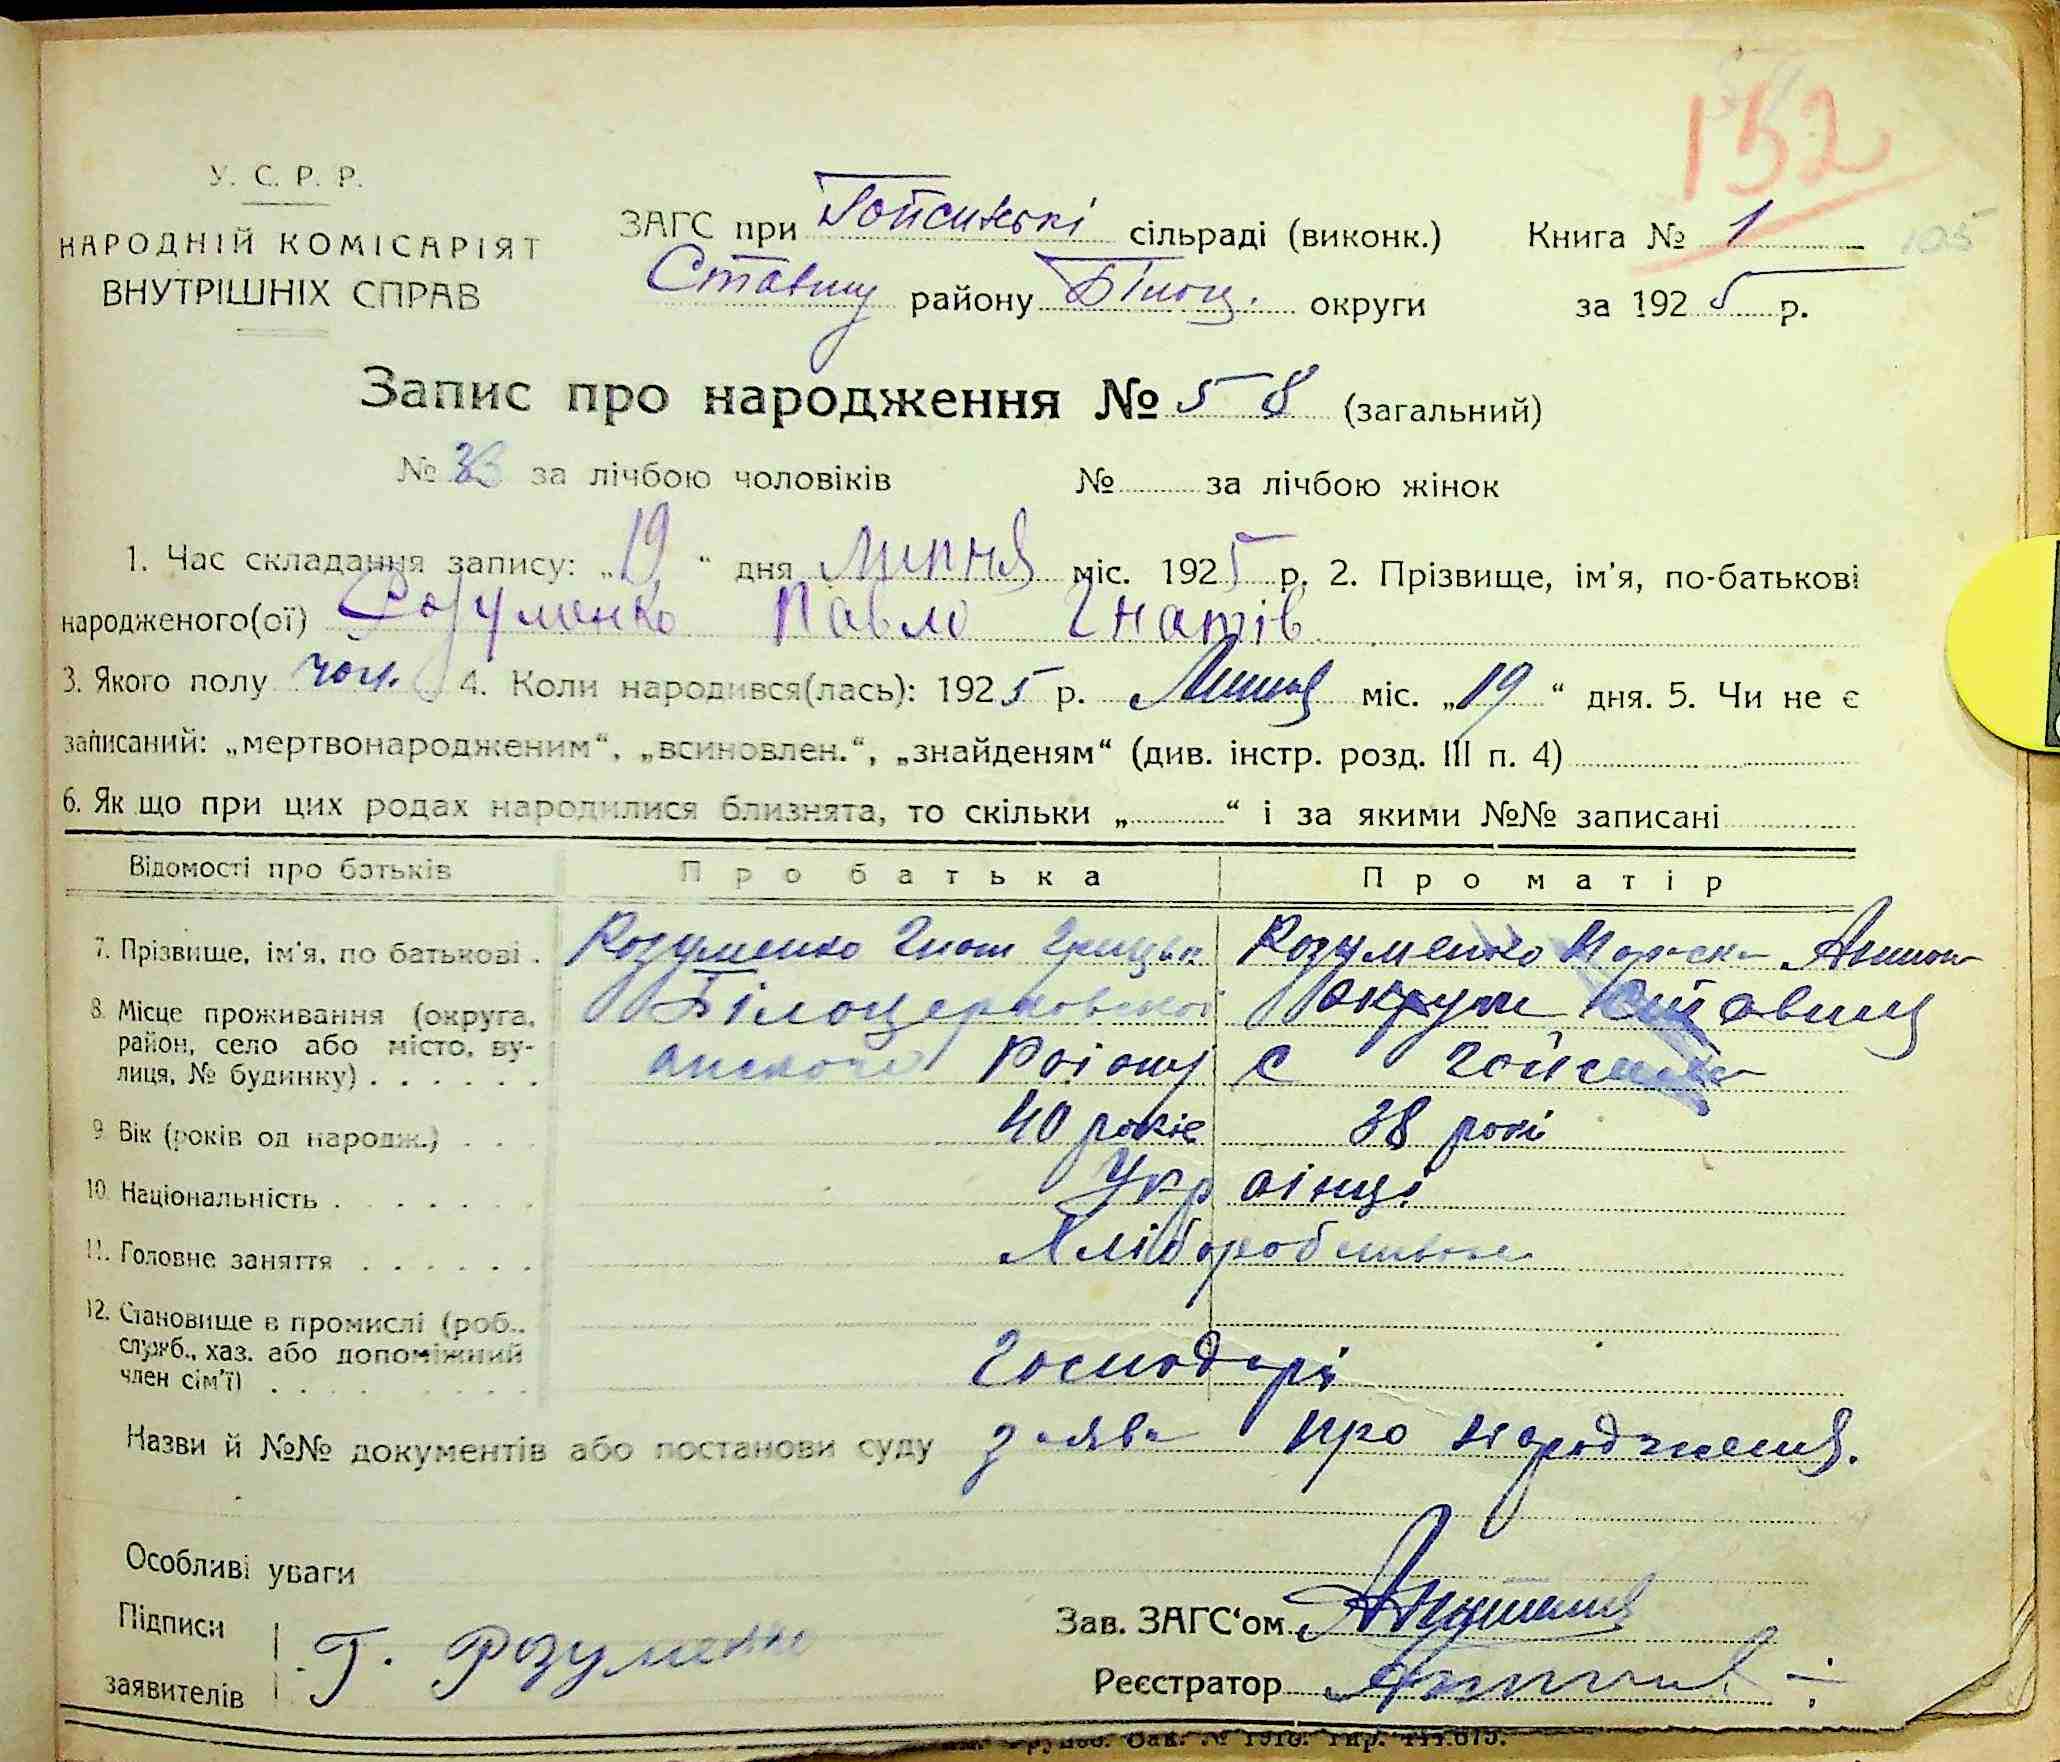 152
У. С. Р. Р.
НАРОДНІЙ КОМІСАРІЯТ
ВНУТРІШНІХ СПРАВ
ЗАГС при Гойсинські сільраді (виконк.) Книга № 1 105
Ставищ району Білоц. округи за 1925 р.
Запис про народження № 58 (загальний)
№ 33 за лічбою чоловіків № за лічбою жінок
1. Час складання запису: „19“ дня липня міс. 1925 р. 2. Прізвище, ім'я, по-батькові
народженого(ої) Розуменко Павло Гнатів
3. Якого полу чол. 4. Коли народився(лась): 1925 р. Липня міс. „19“ дня. 5. Чи не є
записаний: „мертвонародженим“, „всиновлен.“, „знайденям“ (див. інстр. розд. III п. 4)
6. Як що при цих родах народилися близнята, то скільки „ “ і за якими №№ записані
Відомості про батьків Про батька Про матір
7. Прізвище, ім'я, по батькові . Розуменко Гнат Грицьк Розуменко Антон
8. Місце проживання (округа, Білоцерковської округи Ставищ
район, село або місто, ву- анского Району с Гойсин
лиця, № будинку) . . . . . .
9. Вік (років од народж.) . . . 40 років 38 рокі
10. Національність . . . . . . . Українці
11. Головне заняття . . . . . . Хлібороб
12. Становище в промислі (роб.,
служб., хаз. або допоміжний Господарі
член сім'ї) . . . . . . . . .
Назви й №№ документів або постанови суду заява про народження.
Особливі уваги
Підписи Г. Розуменко Зав. ЗАГС'ом
заявителів Реєстратор